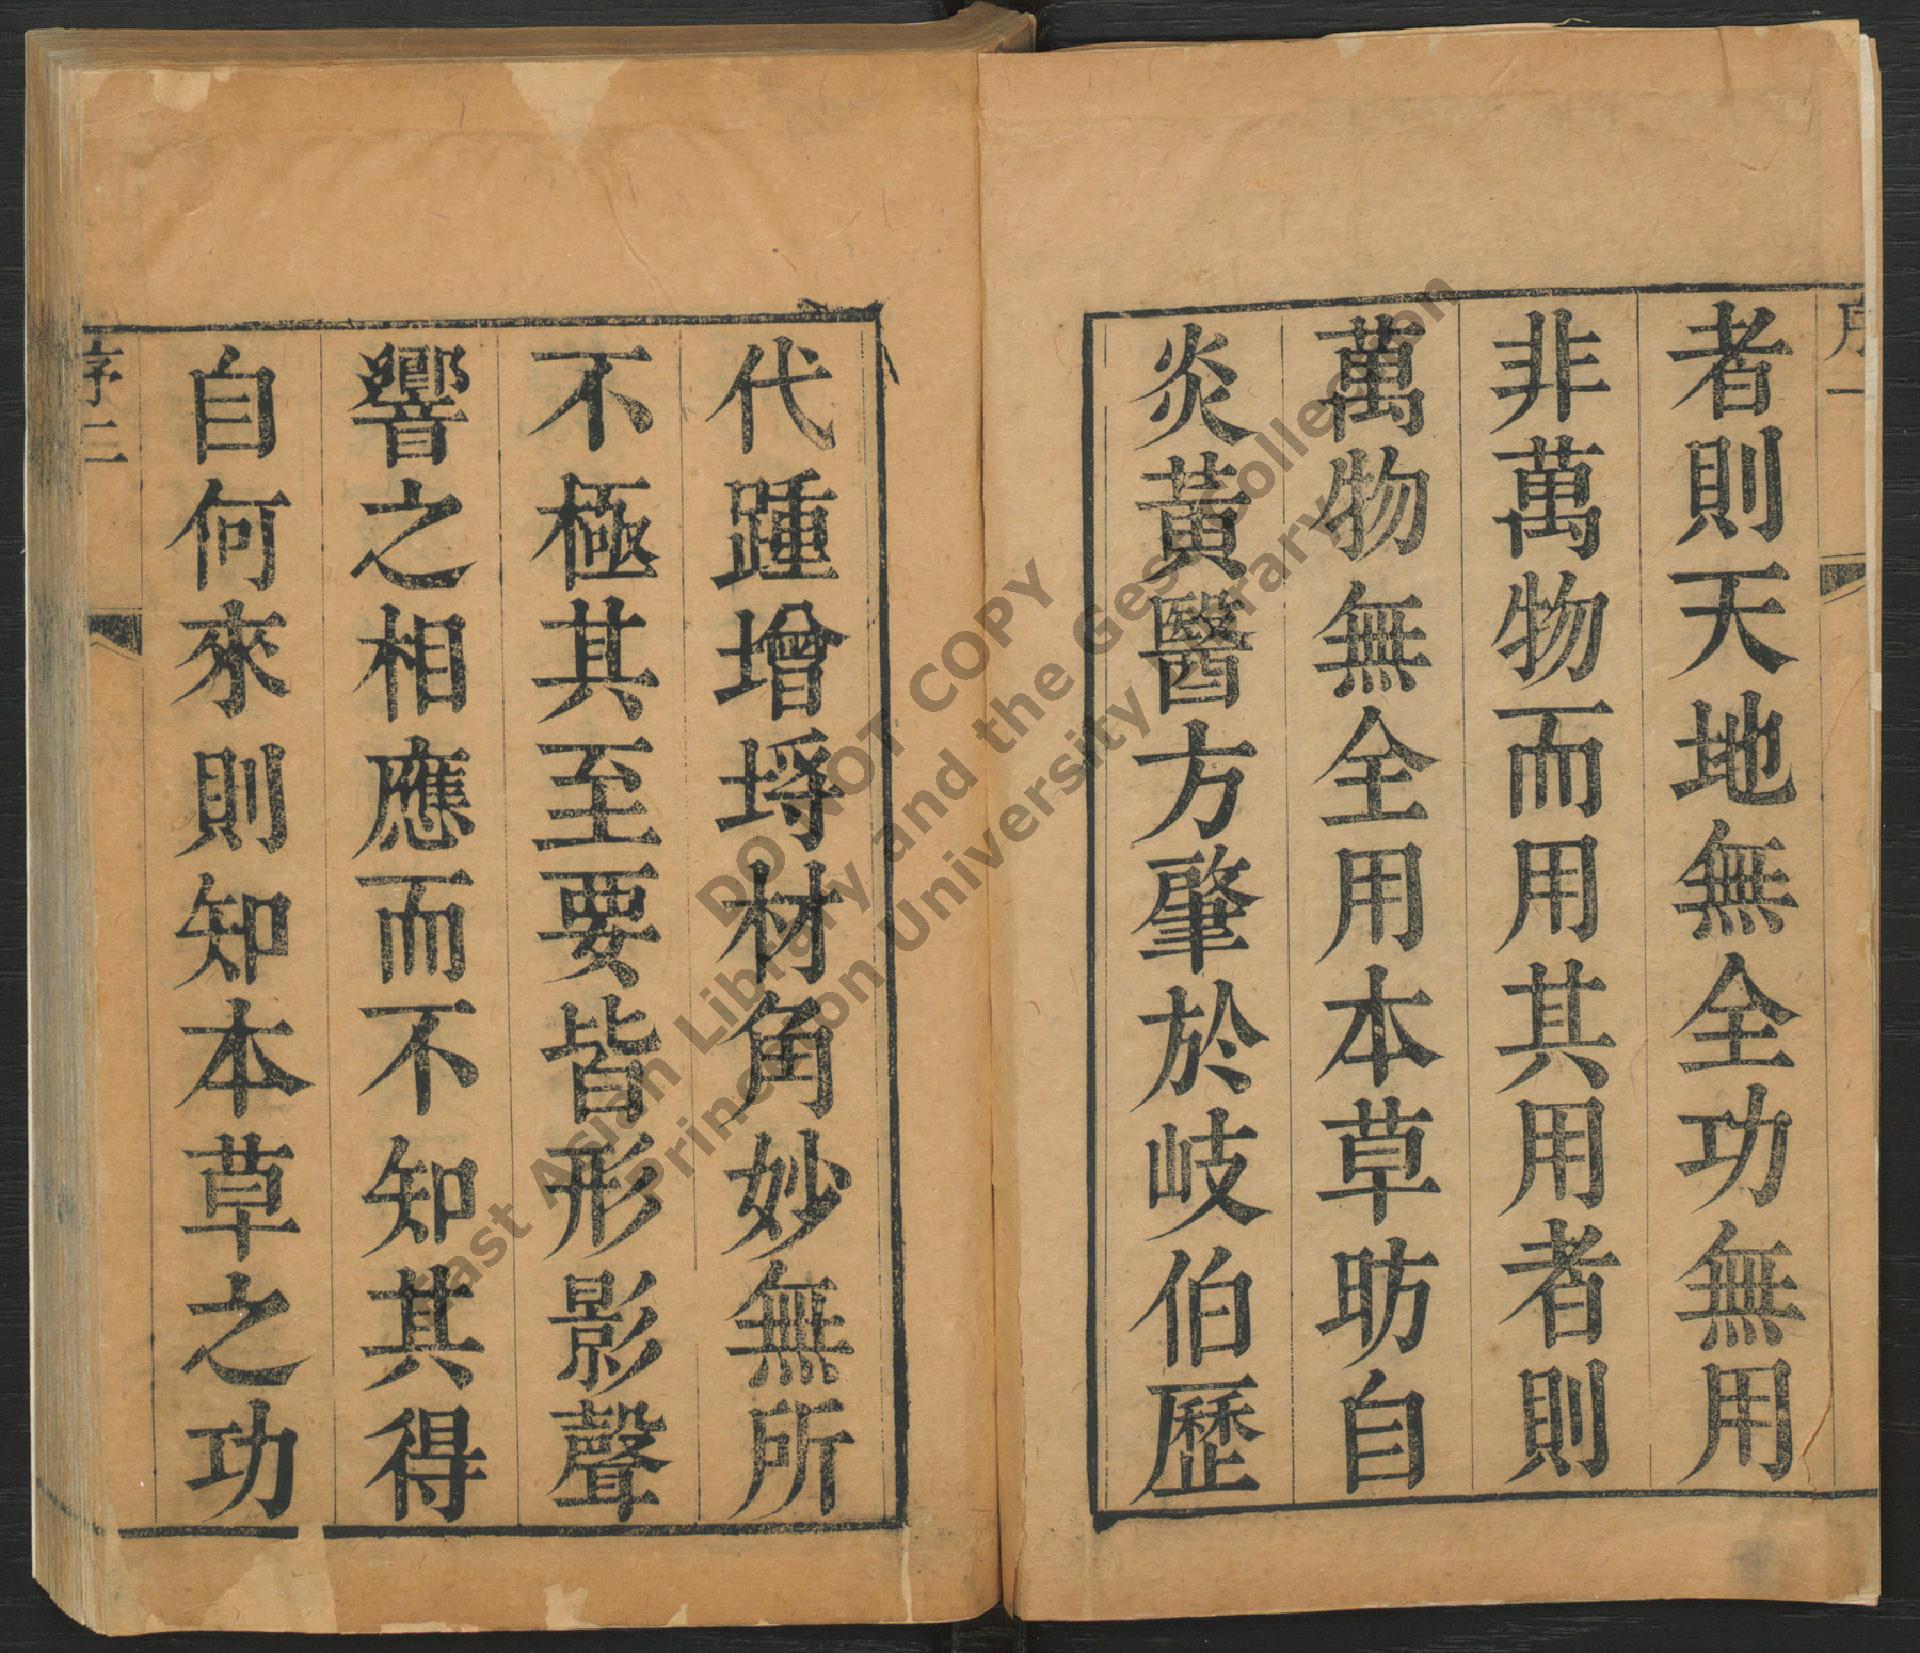 序一
者則天地無全功無用
非萬物而用其用者則
萬物無全用本草昉自
炎黃醫方肇於岐伯歷
代踵增埒材角妙無所
不極其至要皆形影聲
響之相應而不知其得
自何來則知本草之功
序二
DO NOT COPY
East Asian Library and the Gest Collection
Princeton University Library